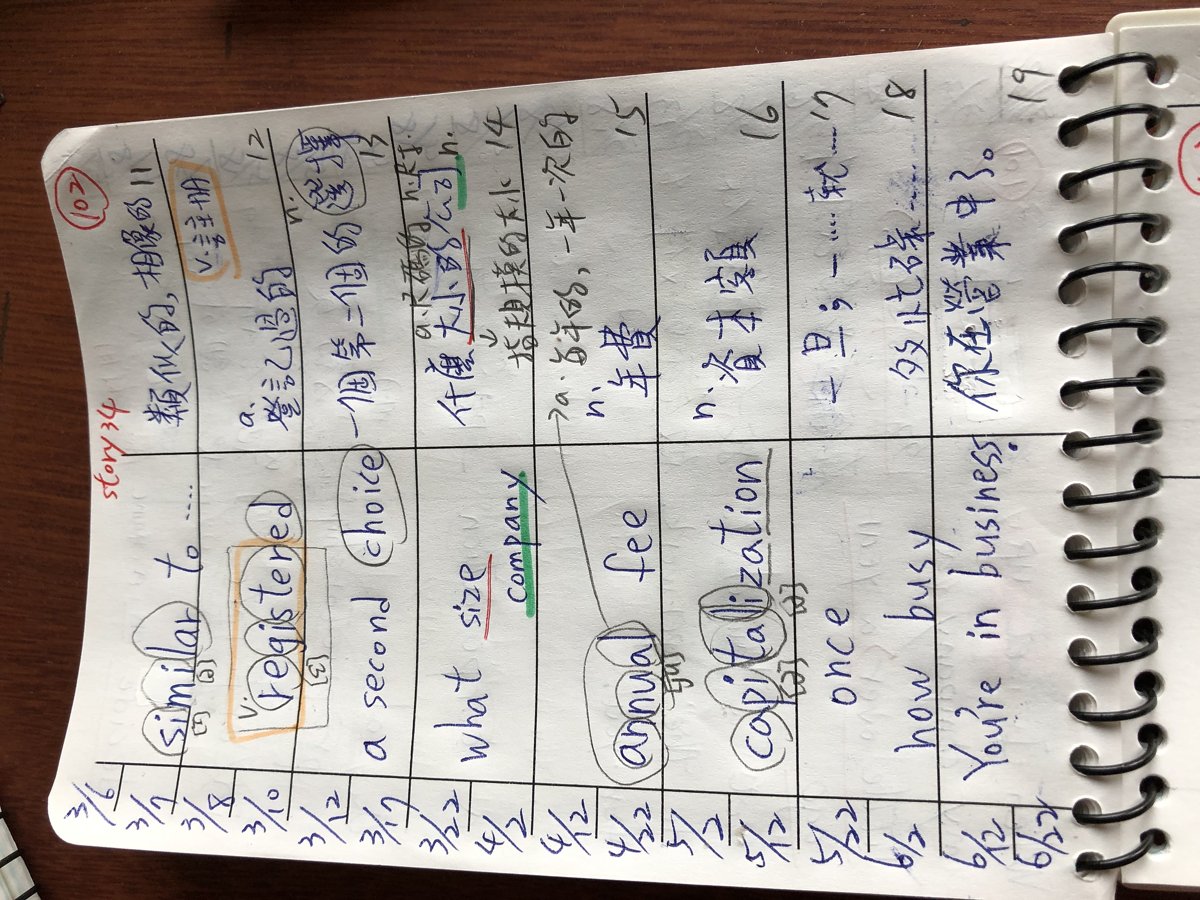 story34
102
3/6
3/7
similar to ......
類似的, 相像的 11
3/8
3/10
v. registered
a. 登記過的
v. 註冊
12
3/12
3/17
a second choice
一個第二個的 n. 選擇
13
3/22
4/2
what size company
什麼大小的公司 n.
指規模的大小 14
4/12
4/22
annual fee
a. 每年的, 一年一次的
n. 年費
15
5/2
5/12
capitalization
n. 資本額
16
5/22
6/2
once
一旦; 一......就...... 17
how busy
多忙碌 18
6/12
6/22
You're in business.
你在營業中了。
19